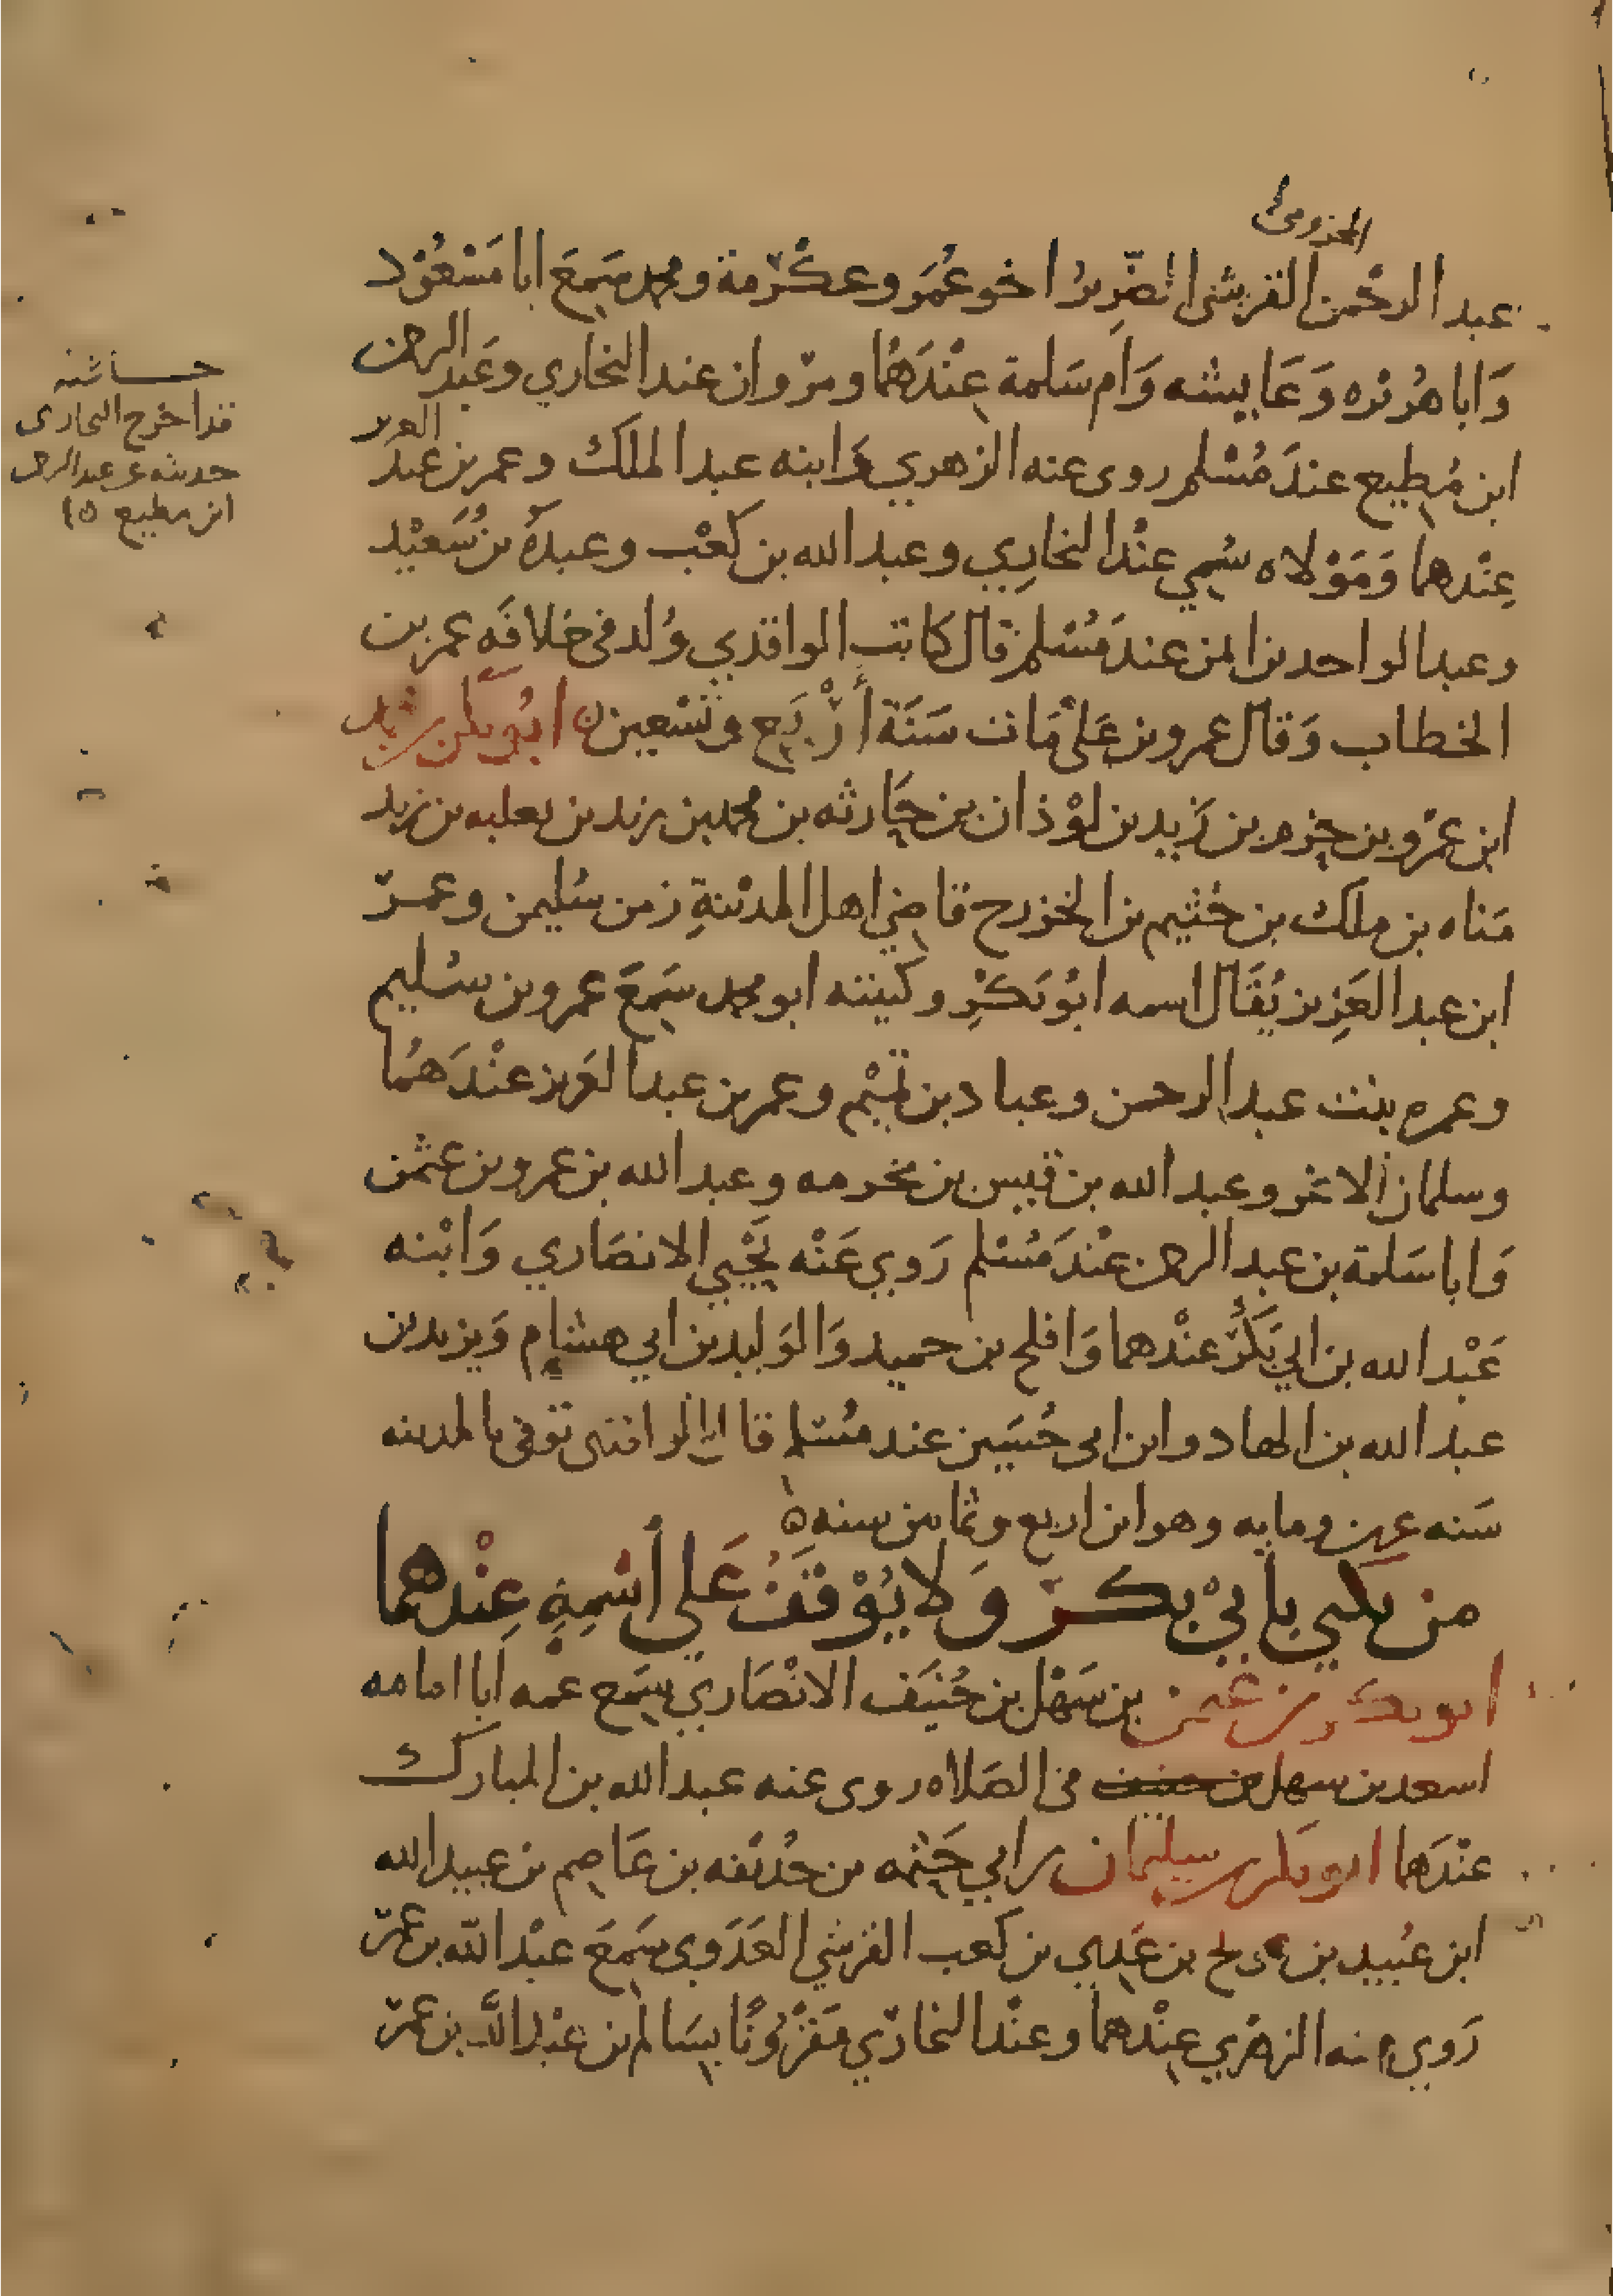 المخزومي
عبد الرحمن القرشي الضَّرِيرُ اخو عُمَر وعكْرمة ومحمد سَمِعَ ابا مَسْعُوْد
وَابا هُرَيْره وَعَايشه وَام سَلمة عِنْدَهُما ومرْوان عند البخاري وعَبد الرحمن
ابن مُطِيع عندَ مُسْلم روى عنه الزهري وَابنه عبد الملك وعمر بن عَبد العزيز
عِنْدهما وَمَوْلاه سُمي عنْد البخارِي وعبد الله بن كعْب وعبدَة بن سَعِيْد
وعبد الواحد بن ايمن عندَ مُسْلم قال كاتب الواقدي وُلد في خلافَه عمر بن
الخطاب وَقال عمرو بن عَلى مَاتَ سَنَة أرْبَع وتسْعين ابُو بكر بن محمد
ابن عمْرو بن حزم بن زَيد بن لَوْذان بن حَارثه بن محمد بن زيد بن ثعلبه بن زيد
مَناه بن ملك بن خثيم بن الخزرج قاضي اهل المدينةِ زمن سُليمن وعمر
ابن عبد العَزِيز يُقَال اسمه ابُو بَكْرٍ وكنيته ابو محمد سَمِعَ عمرو بن سُليم
وعمره بنت عبد الرحمن وعباد بن تميْم وعمر بن عبد العَزيز عنْدَهُمَا
وسلمان الاغر وعبد الله بن قيس بن مخرمه وعبد الله بن عمرو بن عثمن
وَابا سَلمة بن عبد الرحمن عنْدَ مُسْلم رَوي عَنْه يَحْيي الانصَاري وَابْنه
عَبْد الله بن ابي بَكْرٍ عنْدهما وَافلح بن حميد وَالوَليد بن ابي هشام وَيزيد بن
عبد الله بن الهاد وابن ابى حُسَين عند مسْلم قال الواقدى توفى بالمدينه
سَنه عشرين ومايه وهو ابن اربع وثمانين سنه
من يكني بأبيْ بكر وَلا يُوْقَفُ عَلي أسْمِهِ عِنْدهما
ابو بكر بن عثمن بن سَهْل بن حُنيَف الانْصَاري سَمِع عمه ابا امامه
اسعد بن سهل بن حنيف في الصَلاه روى عنه عبد الله بن المبارك
عنْدَهما ابو بَكر بن سليمان بن ابي حَثمه بن حُذيفه بن عَاصِم بن عبيد الله
ابن عُبيد بن عويج بن عَدي بن كعب القرشي العَدَوي سَمِعَ عبْد الله بن عمر
رَوي عنه الزهْري عِنْدهما وعنْد البخارِي مَقرُوْنًا بسَالم بن عَبْد الله بن عمر
حاشيه
قد اخرج البخارى
حديثه عن عبد الرحمن
ابن مطيع